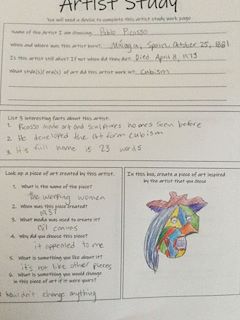 Artist Study
You will need a device to complete this artist study work page
Name of the Artist I am choosing: Pablo Picasso
When and where was this artist born?: Málaga, Spain, October 25, 1881
Is this artist still alive? If not when did they die?: Died April 8, 1973
What style(s)/era(s) of art did this artist work in?: Cubism
List 3 interesting facts about this artist.
1. Picasso made art and sculptures no ones seen before
2. He developed the art form cubism
3. His full name is 23 words
Look up a piece of art created by this artist.
1. What is the name of the piece?
the weeping women
2. When was this piece created?
1937
3. What media was used to create it?
Oil canvas
4. Why did you choose this piece?
it appealed to me
5. What is something you like about it?
it's not like other pieces
6. What is something you would change
in this piece of art if it were yours?
I wouldn't change anything
In this box, create a piece of art inspired
by the artist that you chose